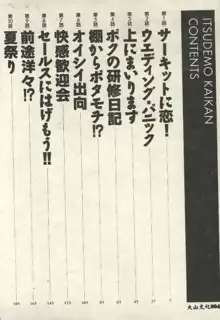 ITSUDEMO KAIKAN
CONTENTS
第1話 サーキットに恋!
第2話 ウエディング・パニック
第3話 上にまいります
第4話 ボクの研修日記
第5話 棚からボタモチ!?
第6話 オイシイ出向
第7話 快感歓迎会
第8話 セールスにはげもう!!
第9話 前途洋々!?
第10話 夏祭り